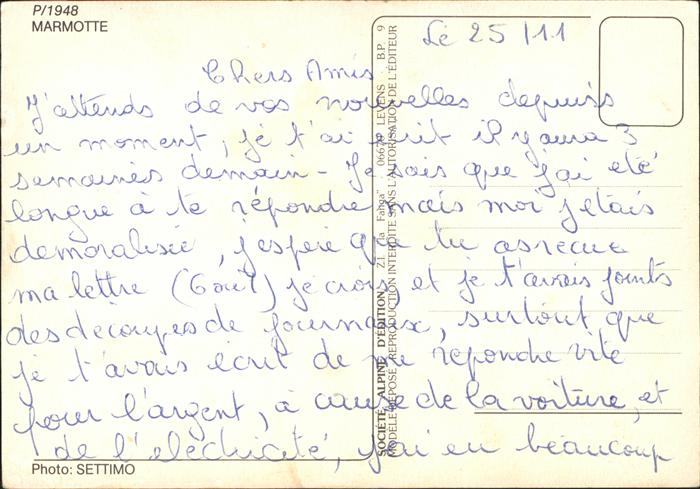 P/1948
MARMOTTE
Le 25/11
Chers Amis
J'attends de vos nouvelles depuis
un moment, je t'ai écrit il y aura 3
semaines demain - Je sais que j'ai eté
longue à te répondre mais moi j'etais
demoralisée, j'espère que tu as recue
ma lettre ( ) je crois et je t'avais joints
des découpes de journaux, surtout que
je t'avais écrit de me repondre vite
pour l'argent, à cause de la voiture, et
de l'electricité, j'ai eu beaucoup
Photo: SETTIMO
SOCIÉTÉ ALPINE D'ÉDITION Z.I. "la Fanga" LEVENS B.P. 9
MODÈLE DÉPOSÉ / REPRODUCTION INTERDITE SANS L'AUTORISATION DE L'ÉDITEUR